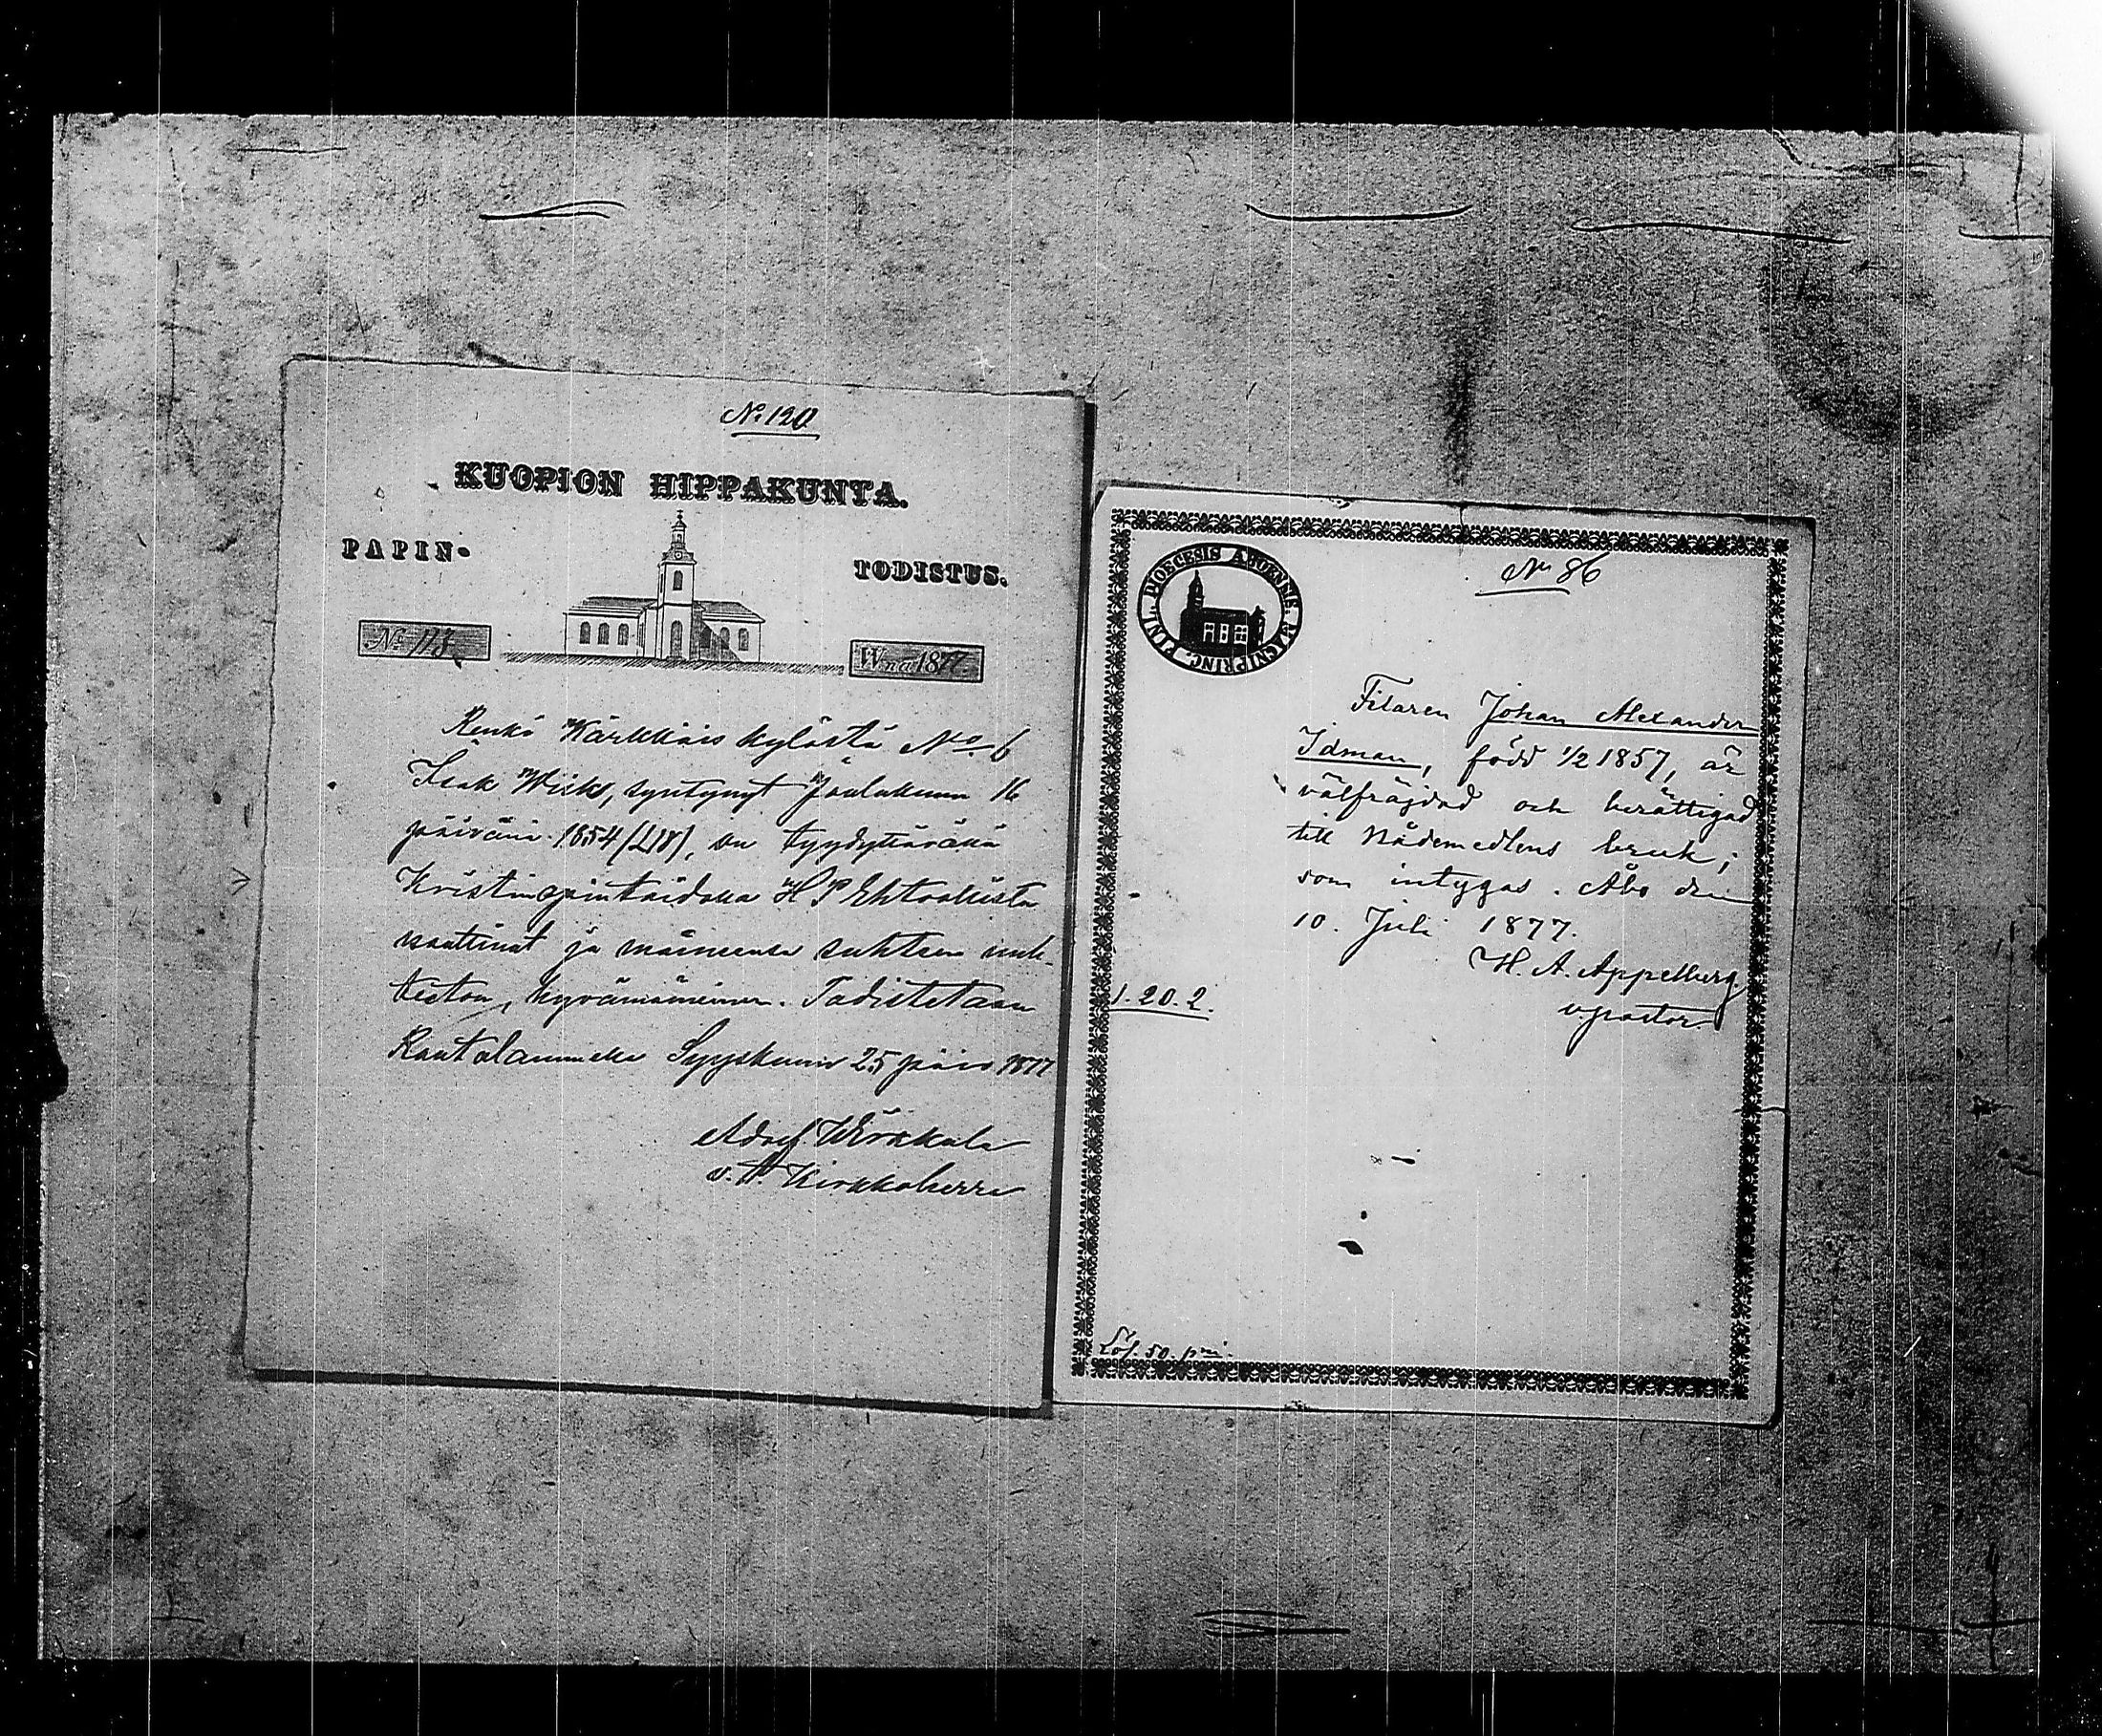 No 120
KUOPION HIPPAKUNTA.
PAPIN-
TODISTUS.
No 113
Wna 1877
Renki Kärkkäis kylästä No 6
Isak Wisk, syntynyt Joulukuun 16
päivänä 1854 (LIV), on tyydyttävällä
Kristinopintaidolla H P Ehtoollista
nauttinut ja maineensa suhteen muh-
teeton, hyvämaineinen. Todistetaan
Rautalammilla Syyskuun 25 päiv 1877
Adolf Wirkkala
v. Kirkkoherra
No 86
DIOECESIS ABOENSIE. MAGNI PRINC. FINL.
Filaren Johan Alexander
Idman, född 1/2 1857, är
välfräjdad och berättigad
till Nådemedlens bruk;
som intygas. Åbo den
10. Juli 1877.
H. A. Appelberg
v pastor
1. 20. 2.
Lös. 50. pni.